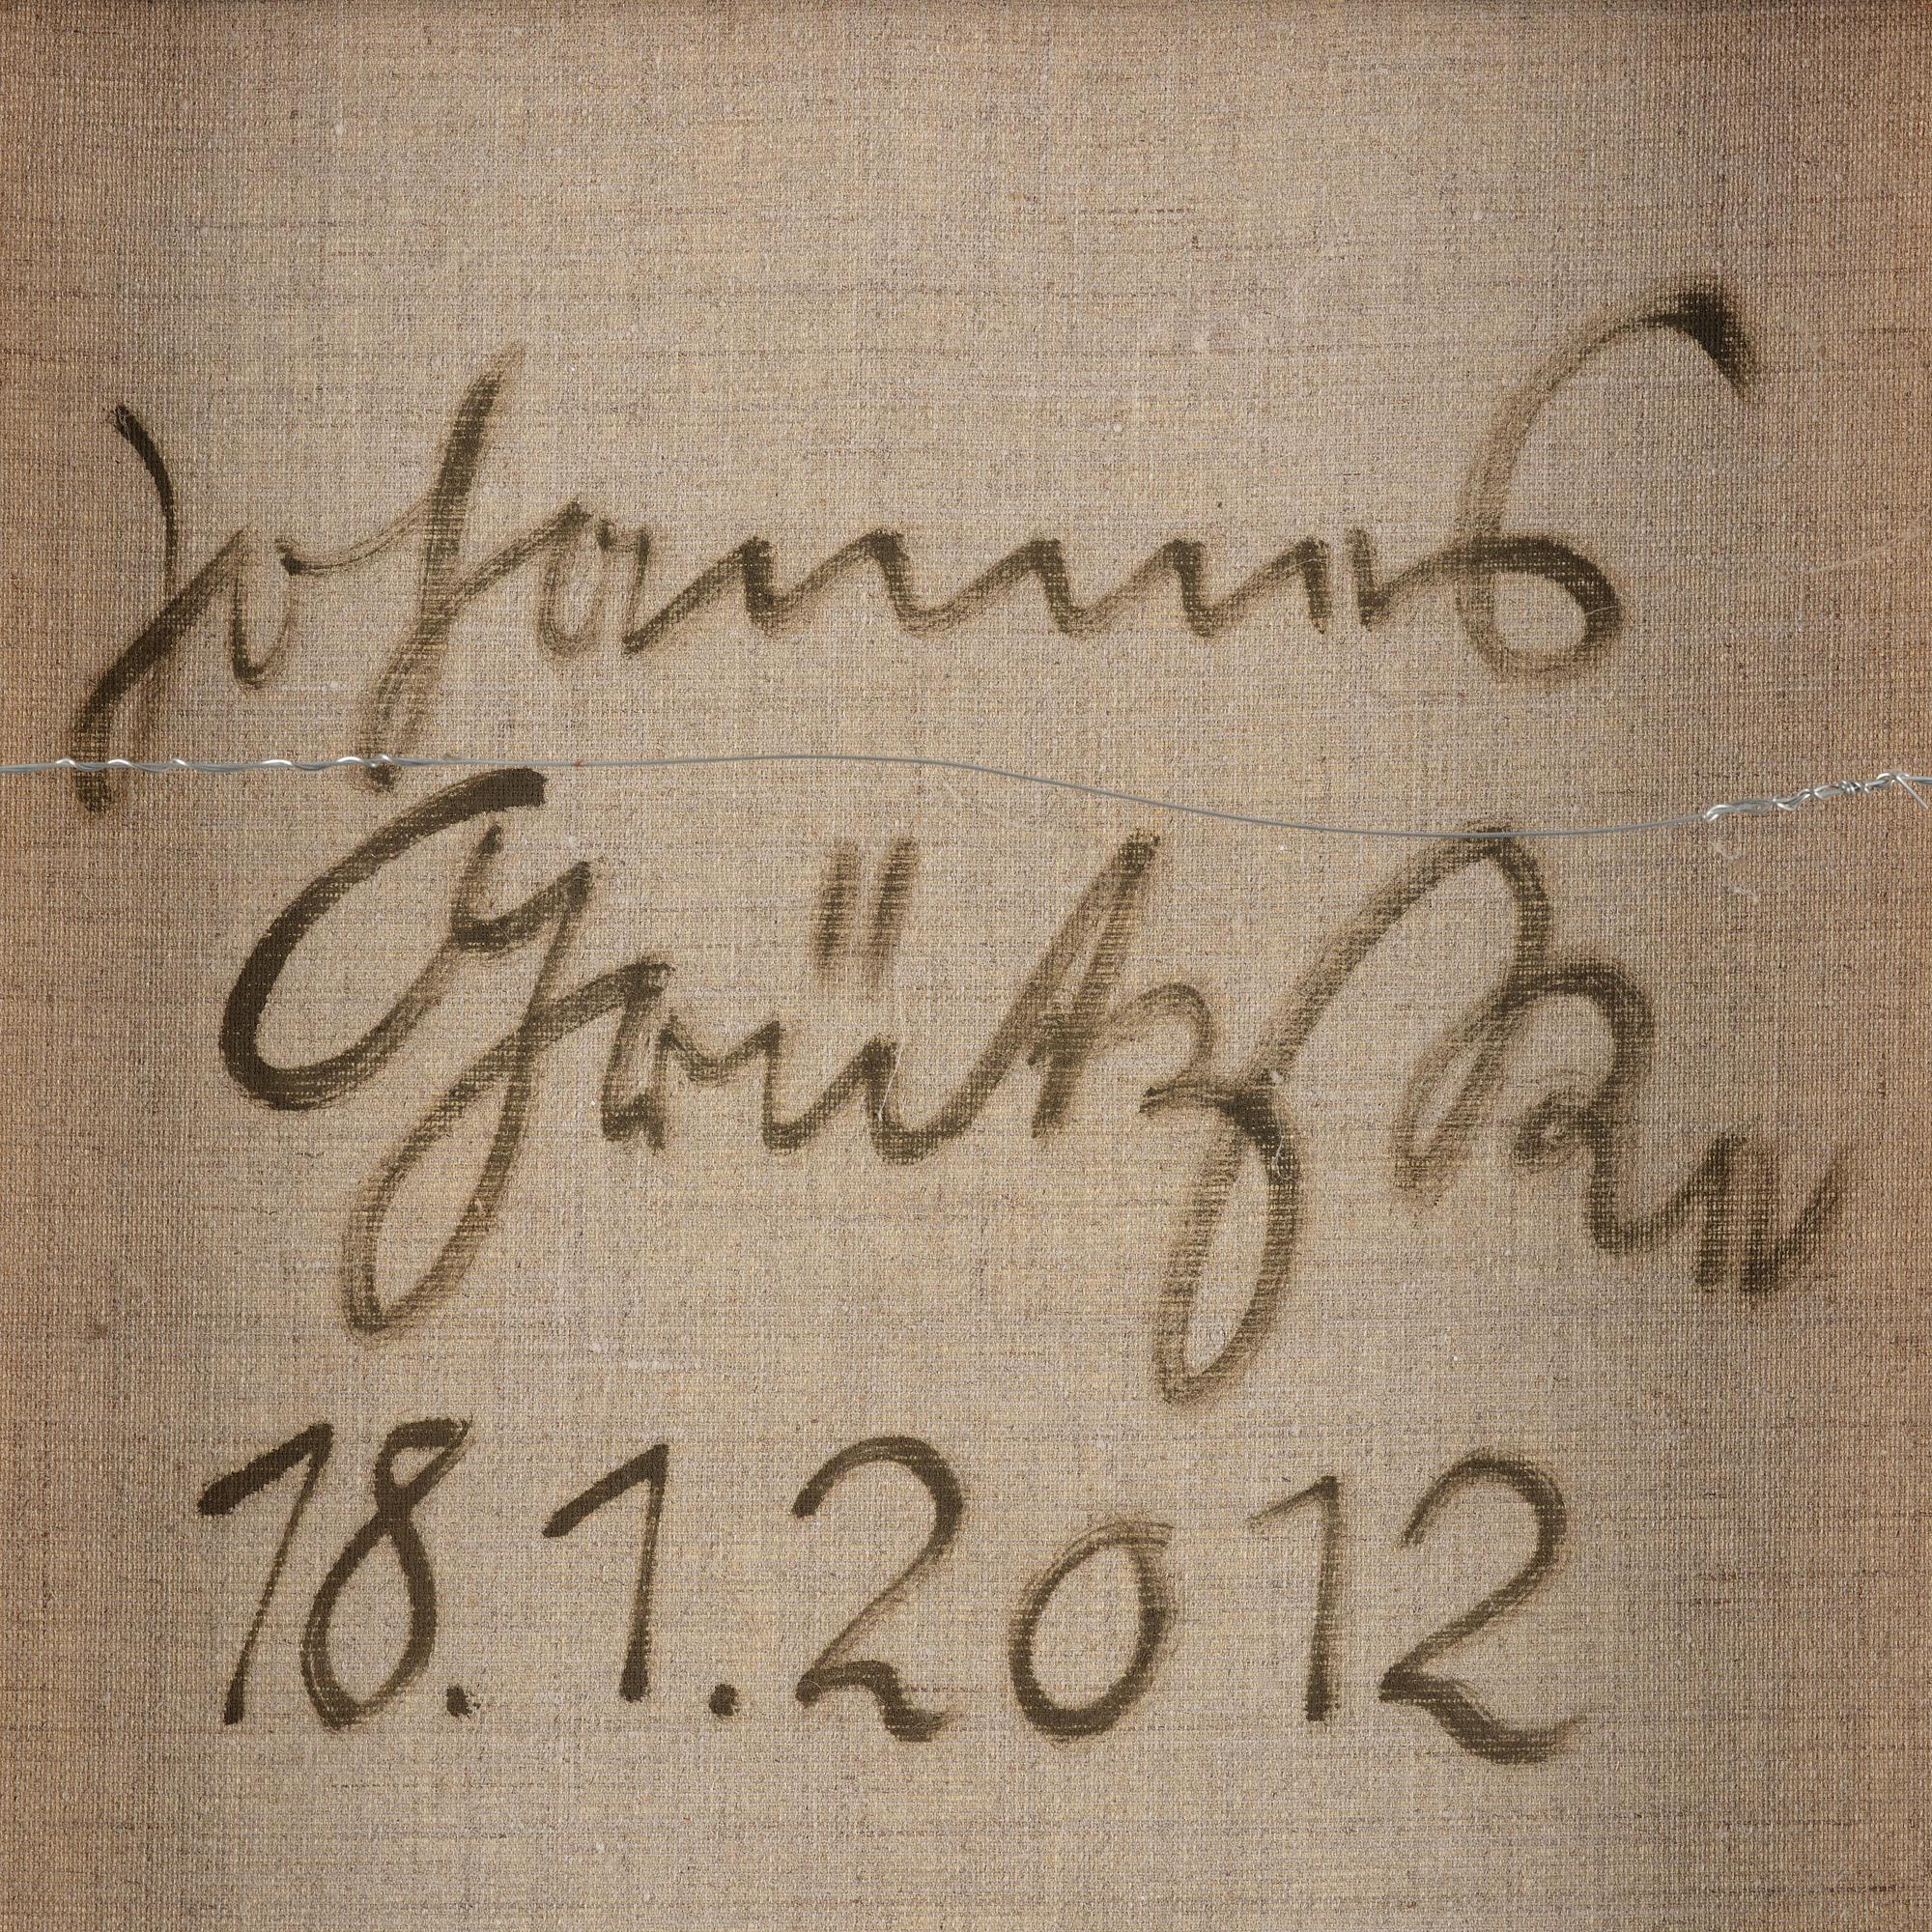 Johannes
Grützke
18.1.2012